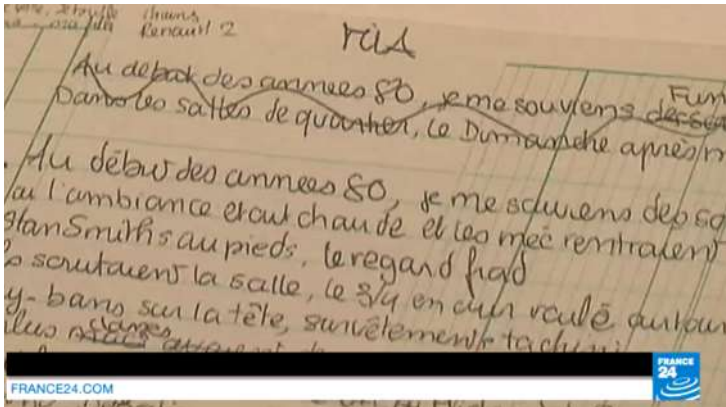 étouffe Chauns
Renault 2
MIA
Au debut des annees 80, je me souviens des
Fun
Dans les salles de quartier, le Dimanche apres m
Au début des annees 80, je me souviens des so
où l'ambiance etait chaude et les mec rentraient
Stan Smiths au pieds, le regard froid
scrutaient la salle, le 3/4 en cuir roulé autour
y-bans sur la tête, survêtements tachini
plus
FRANCE 24
FRANCE24.COM